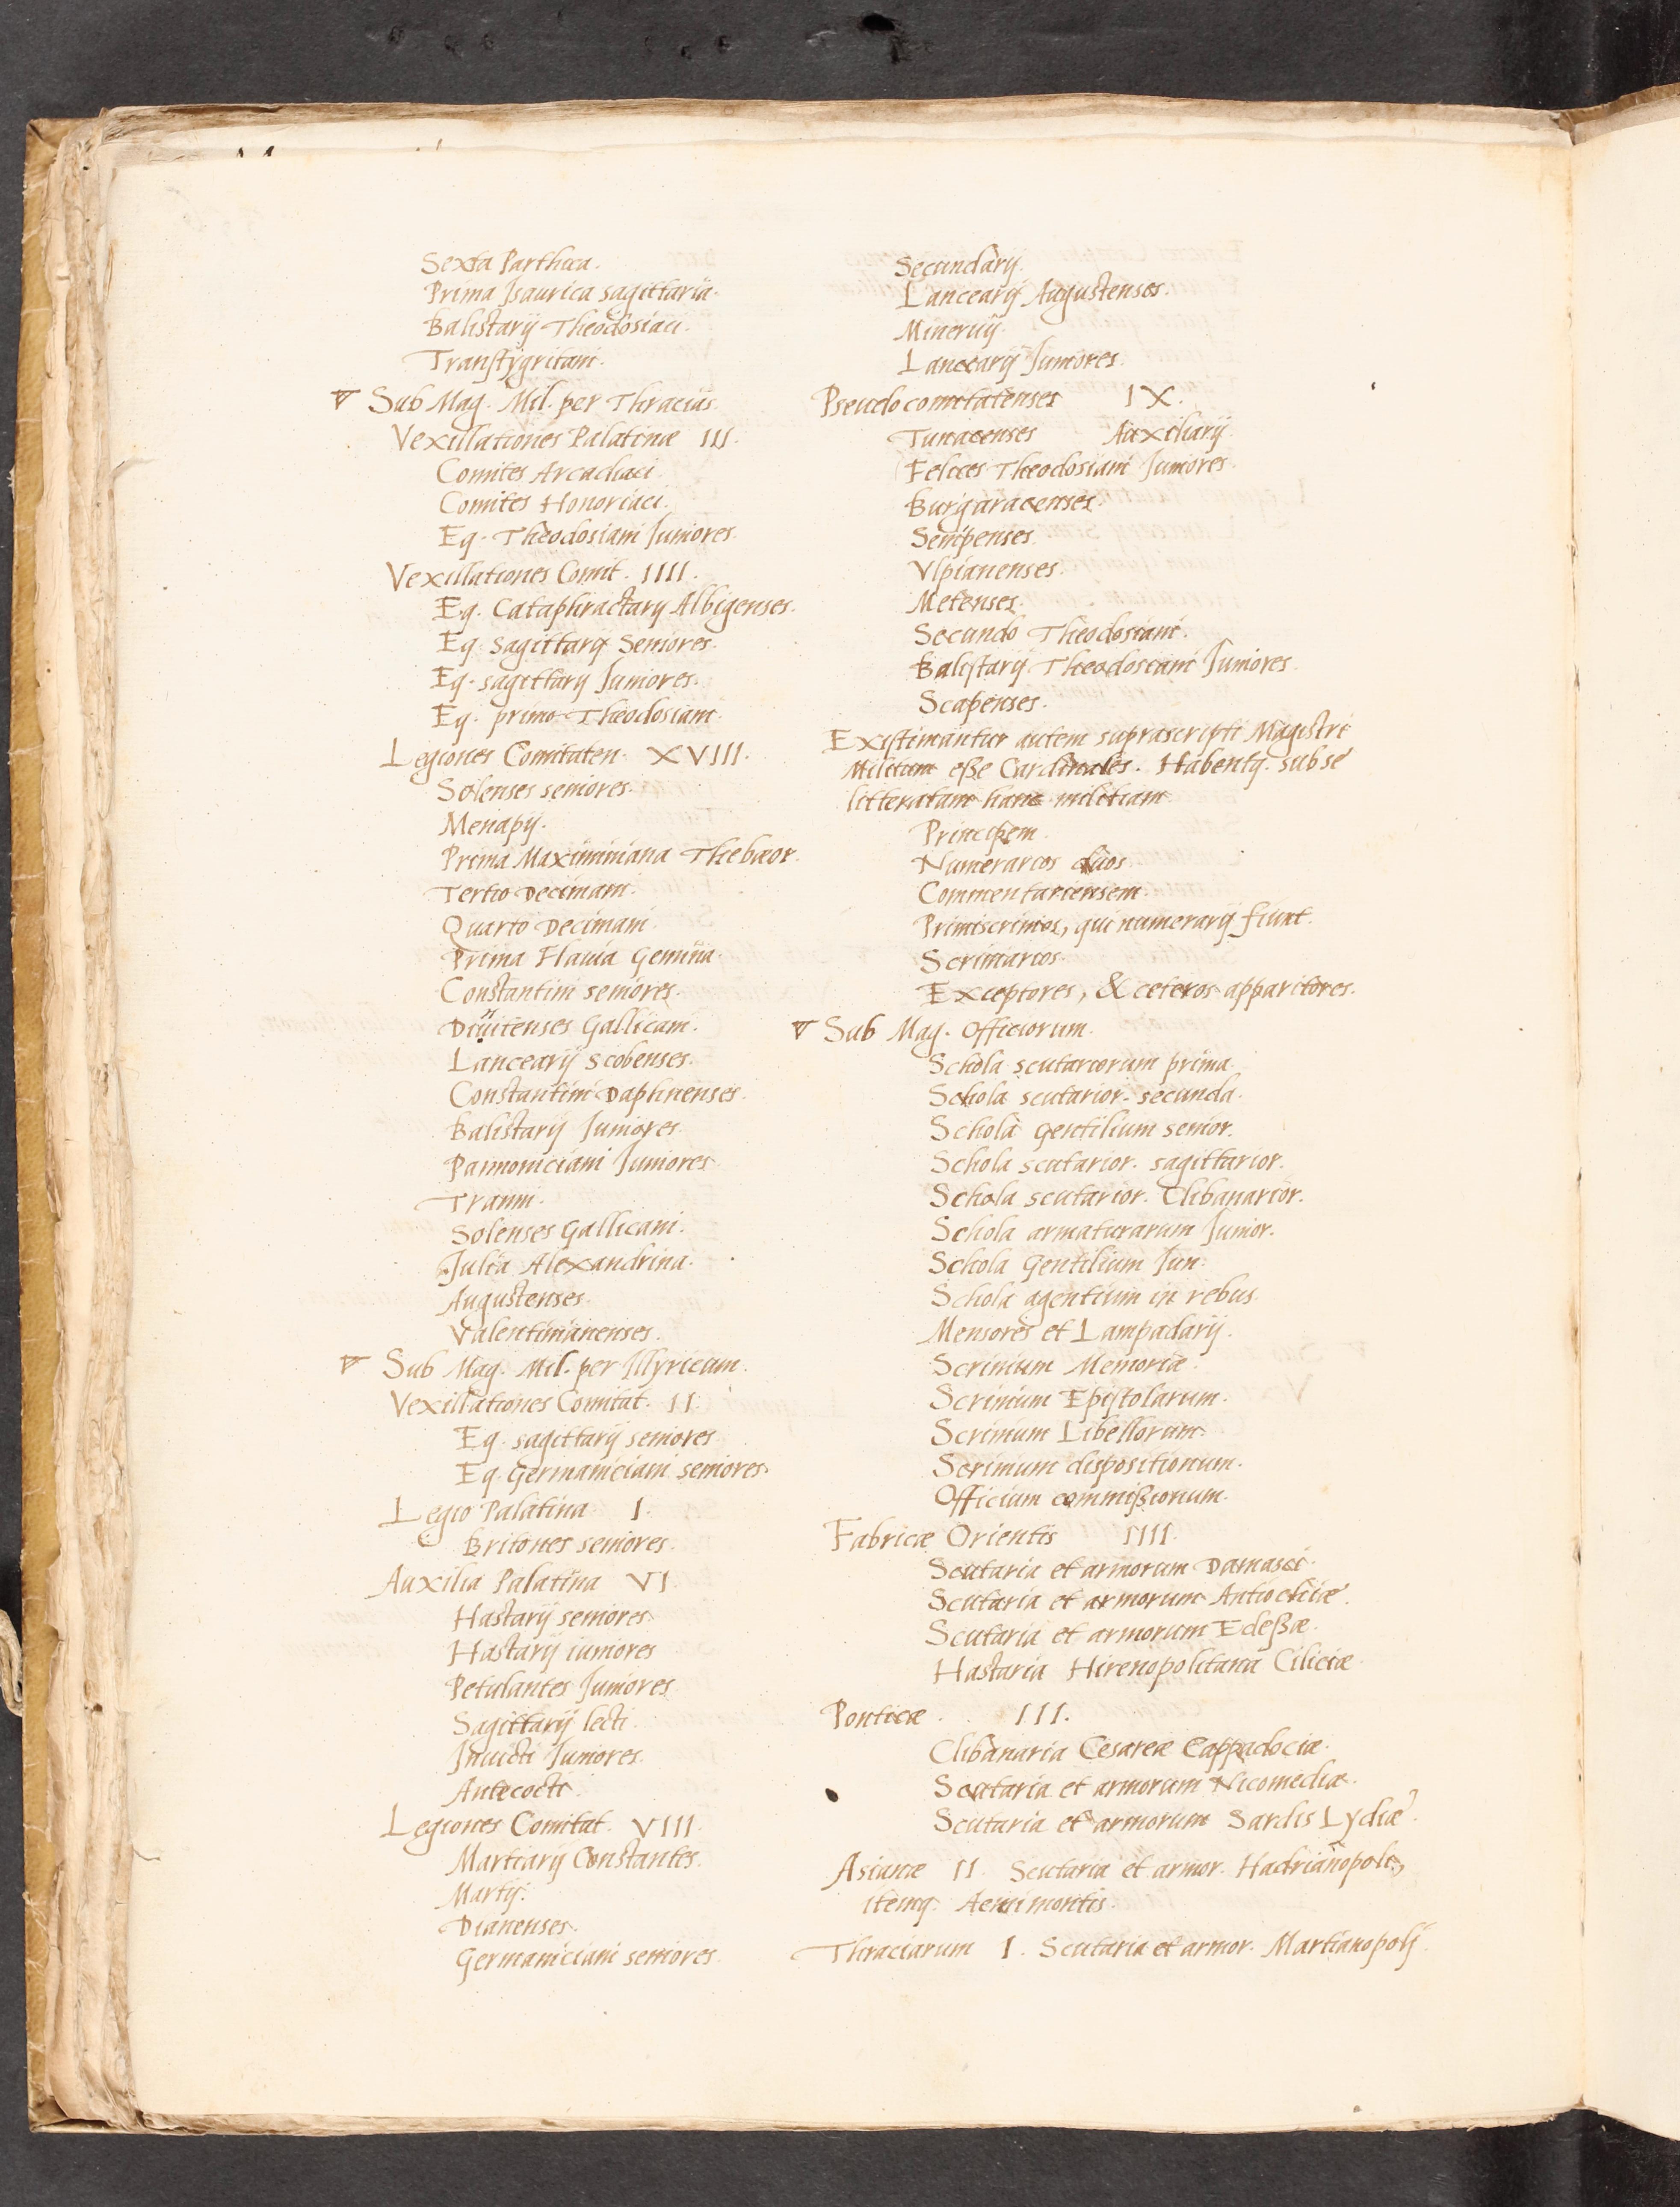 Sexta Parthica.
Prima Isaurica sagittaria.
Balistarij Theodosiaci.
Transtygritani.
Sub Mag. Mil. per Thracias
Vexillationes Palatinæ III.
Comites Arcadiaci.
Comites Honoriaci.
Eq. Theodosiani Juniores
Vexillationes Comit. IIII.
Eq. Cataphractarij Albigenses.
Eq. Sagittarij Seniores.
Eq. sagittarij Juniores.
Eq. primo Theodosiani.
Legiones Comitaten. XVIII.
Solenses seniores.
Menapij.
Prima Maximiniana Thebæor.
Tertio Decimani.
Quarto Decimani.
Prima Flauia Gemina.
Constantini seniores.
Diuitenses Gallicani.
Lancearij Scobenses.
Constantini Daphnenses.
Balistarij Juniores.
Pannoniciani Juniores
Tzanni.
Solenses Gallicani.
Julia Alexandrina.
Augustenses.
Valentinianenses.
Sub Mag. Mil. per Illyricum.
Vexillationes Comitat. II.
Eq. sagittarij seniores
Eq. Germaniciani seniores.
Legio Palatina I.
Britones seniores.
Auxilia Palatina VI
Hastarij seniores.
Hastarij iuniores
Petulantes Juniores
Sagittarij lecti.
Inuicti Juniores.
Antecocti.
Legiones Comitat. VIII.
Martiarij Constantes.
Martij.
Dianenses.
Germaniciani seniores
Secundarij.
Lancearij Augustenses.
Mineruij.
Lancearij Juniores.
Pseudocomitatenses IX.
Tunacenses Auxiliarij
Felices Theodosiani Juniores.
Burgaracenses.
Scupenses.
Vlpianenses.
Metenses.
Secundo Theodosiani.
Balistarij Theodosiani Juniores.
Scapenses.
Existimantur autem suprascripti Magistri
Militum eße Cardinales. Habentq. sub se
litteratam hanc militiam
Principem.
Numerarios duos
Commentariensem.
Primiscrinios, qui numerarij fiunt.
Scriniarios.
Exceptores, & ceteros apparitores.
Sub Mag. Officiorum.
Schola scutariorum prima.
Schola scutarior. secunda.
Schola Gentilium senior.
Schola scutarior. sagittarior.
Schola scutarior. Clibanarior.
Schola armaturarum Junior.
Schola Gentilium Jun:
Schola agentium in rebus
Mensores et Lampadarij.
Scrinium Memoriæ.
Scrinium Epistolarum.
Scrinium Libellorum.
Scrinium dispositionum.
Officium commißionum.
Fabricæ Orientis IIII.
Scutaria et armorum Damasci.
Scutaria et armorum Antiochiæ.
Scutaria et armorum Edeßæ.
Hastaria Hirenopolitana Ciliciæ
Ponticæ III.
Clibanaria Cesareæ Cappadociæ.
Scutaria et armorum Nicomediæ.
Scutaria et armorum Sardis Lydiæ.
Asianæ II Scutaria et armor. Hadrianopoli,
itemq. Aemimontis.
Thraciarum I. Scutaria et armor. Martianopoli